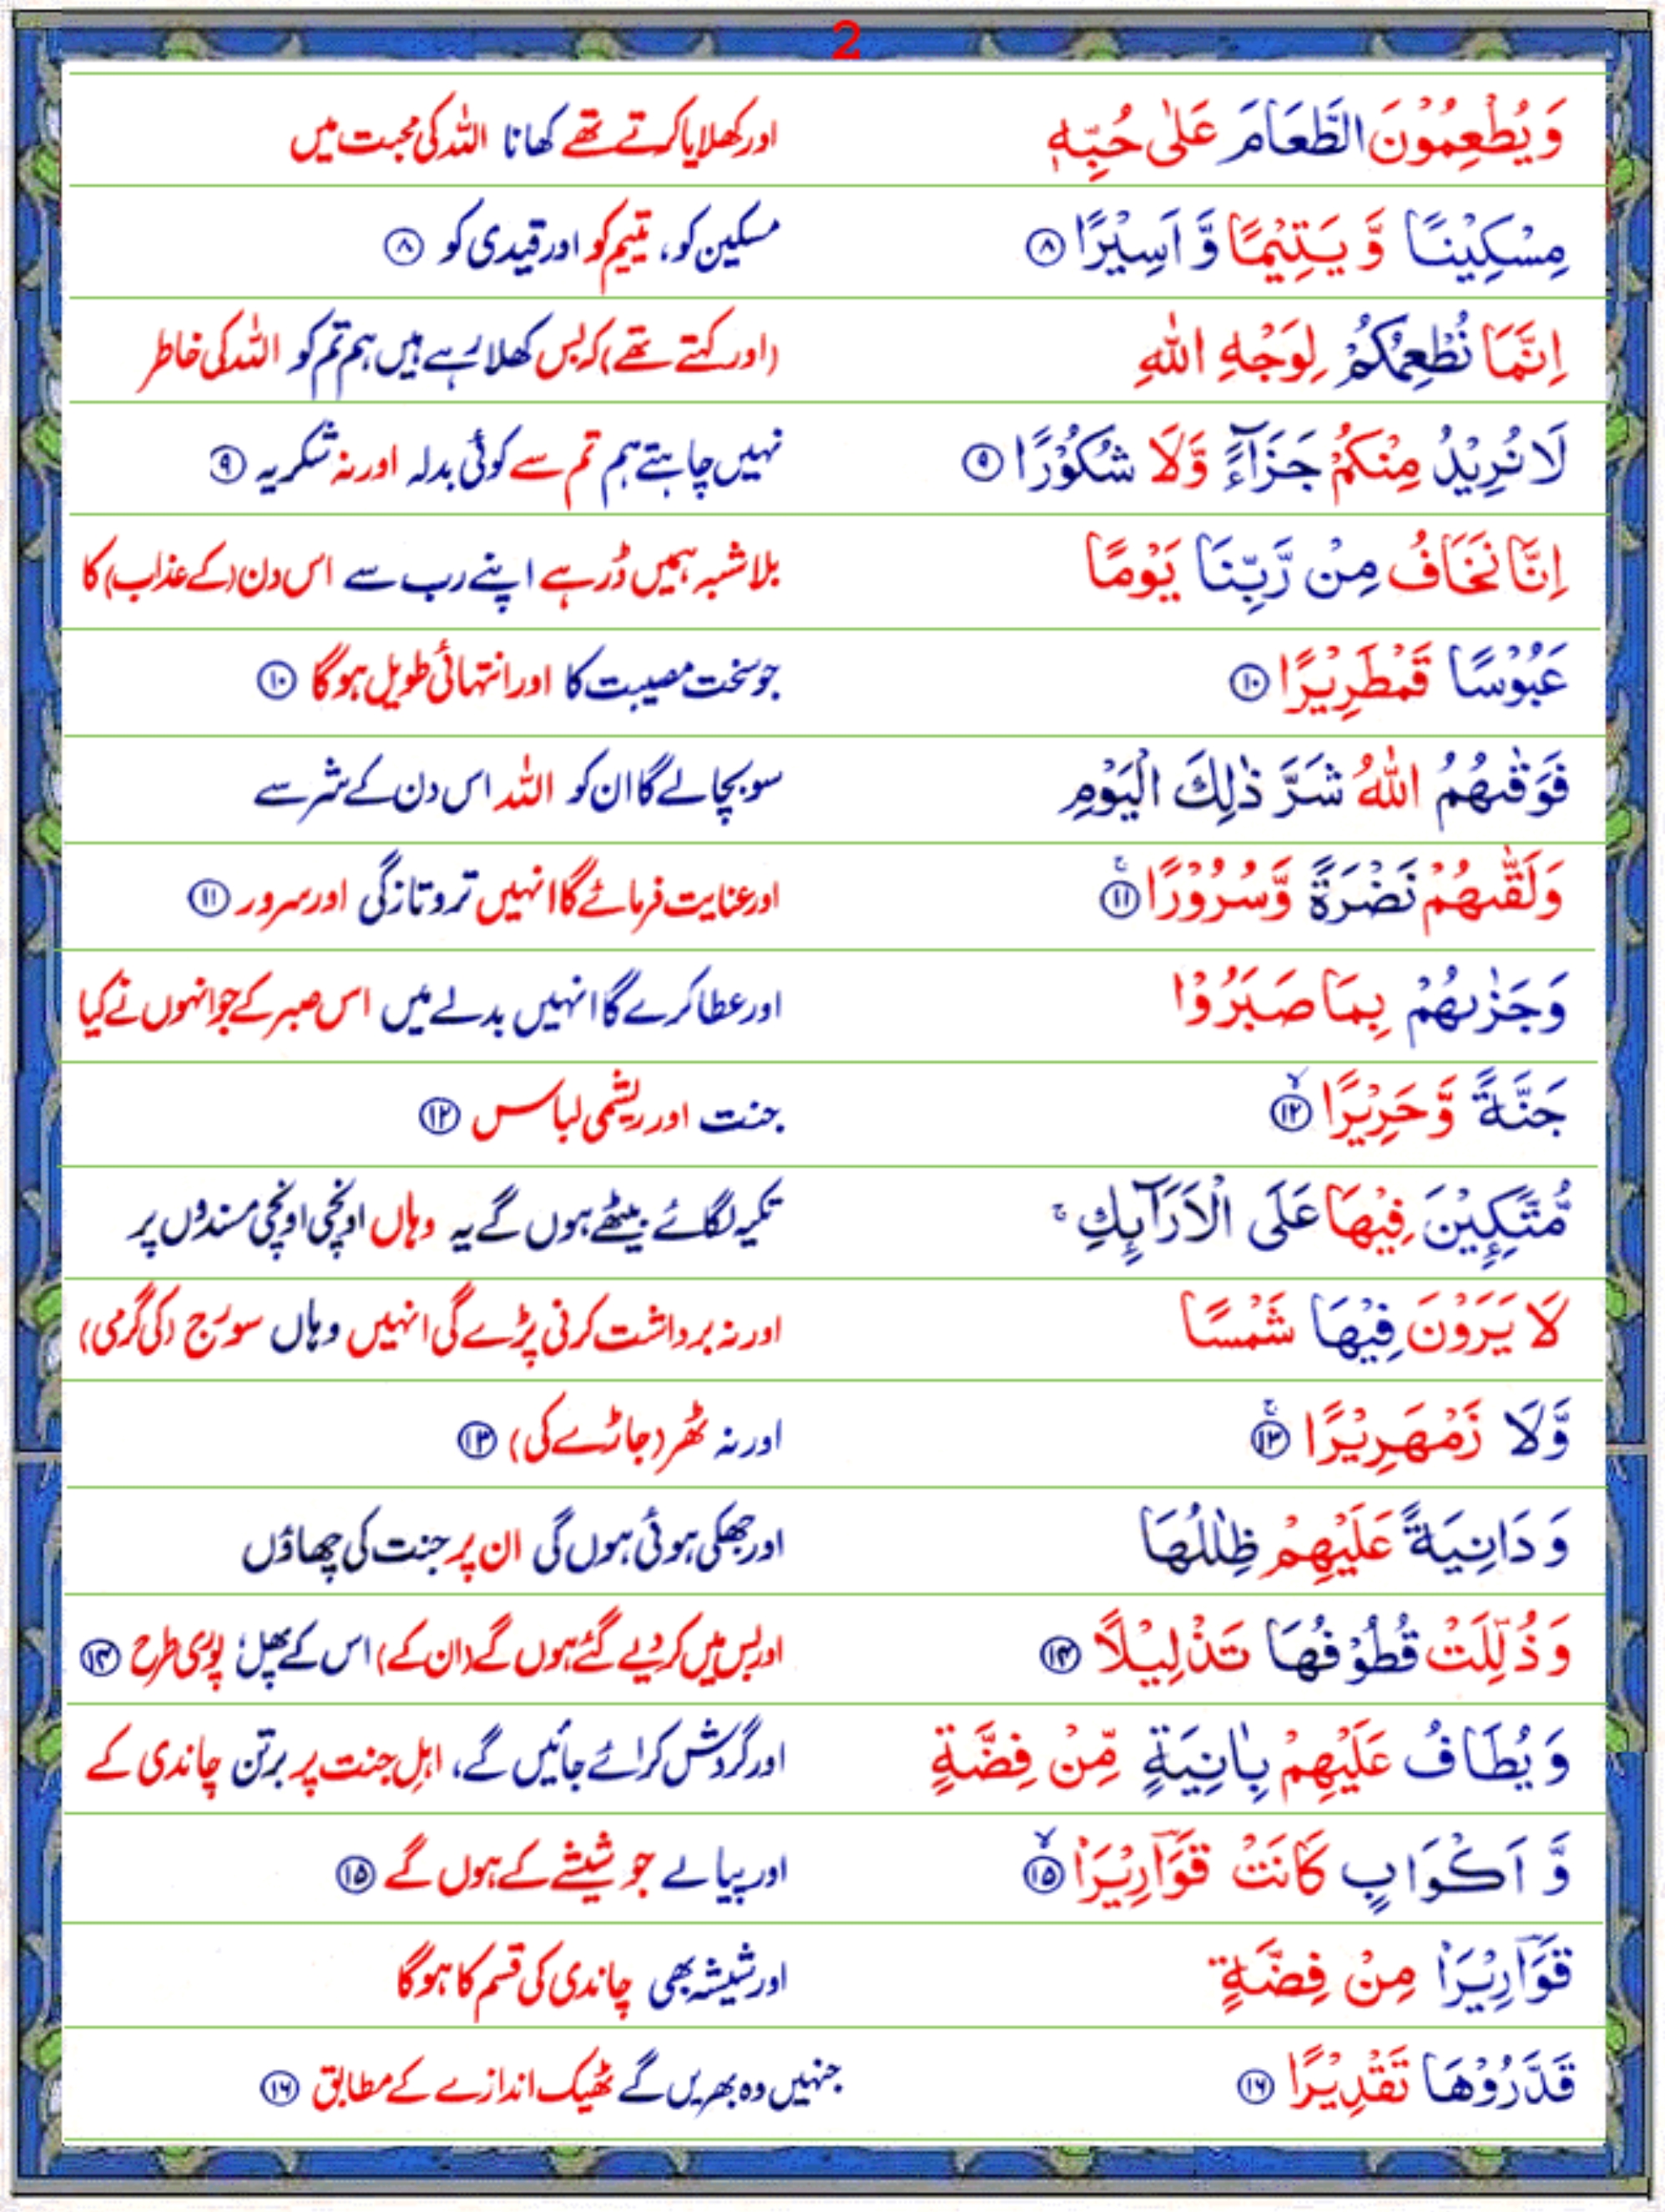 2
وَيُطْعِمُوْنَ الطَّعَامَ عَلٰى حُبِّهٖ اور کھلایا کرتے تھے کھانا اللہ کی محبت میں
مِسْكِيْنًا وَّيَتِيْمًا وَّاَسِيْرًا ۸ مسکین کو، یتیم کو اور قیدی کو ۸
اِنَّمَا نُطْعِمُكُمْ لِوَجْهِ اللّٰهِ (اور کہتے تھے) کہ بس کھلا رہے ہیں ہم تم کو اللہ کی خاطر
لَا نُرِيْدُ مِنْكُمْ جَزَآءً وَّلَا شُكُوْرًا ۹ نہیں چاہتے ہم تم سے کوئی بدلہ اور نہ شکریہ ۹
اِنَّا نَخَافُ مِنْ رَّبِّنَا يَوْمًا بلاشبہ ہمیں ڈر ہے اپنے رب سے اس دن (کے عذاب) کا
عَبُوْسًا قَمْطَرِيْرًا ۱۰ جو سخت مصیبت کا اور انتہائی طویل ہوگا ۱۰
فَوَقٰىهُمُ اللّٰهُ شَرَّ ذٰلِكَ الْيَوْمِ سو بچالے گا ان کو اللہ اس دن کے شر سے
وَلَقّٰىهُمْ نَضْرَةً وَّسُرُوْرًا ۱۱ اور عنایت فرمائے گا انہیں تروتازگی اور سرور ۱۱
وَجَزٰىهُمْ بِمَا صَبَرُوْا اور عطا کرے گا انہیں بدلے میں اس صبر کے جو انہوں نے کیا
جَنَّةً وَّحَرِيْرًا ۱۲ جنت اور ریشمی لباس ۱۲
مُّتَّكِـِٕيْنَ فِيْهَا عَلَى الْاَرَآىِٕكِ ۚ تکیہ لگائے بیٹھے ہوں گے یہ وہاں اونچی اونچی مسندوں پر
لَا يَرَوْنَ فِيْهَا شَمْسًا اور نہ برداشت کرنی پڑے گی انہیں وہاں سورج (کی گرمی)
وَّلَا زَمْهَرِيْرًا ۱۳ اور نہ ٹھر (جاڑے کی) ۱۳
وَدَانِيَةً عَلَيْهِمْ ظِلٰلُهَا اور جھکی ہوئی ہوں گی ان پر جنت کی چھاؤں
وَذُلِّلَتْ قُطُوْفُهَا تَذْلِيْلًا ۱۴ اور بس میں کر دیے گئے ہوں گے (ان کے) اس کے پھل پوری طرح ۱۴
وَيُطَافُ عَلَيْهِمْ بِاٰنِيَةٍ مِّنْ فِضَّةٍ اور گردش کرائے جائیں گے، اہلِ جنت پر برتن چاندی کے
وَّاَكْوَابٍ كَانَتْ قَوَارِيْرَا۠ ۱۵ اور پیالے جو شیشے کے ہوں گے ۱۵
قَوَارِيْرَا۠ مِنْ فِضَّةٍ اور شیشہ بھی چاندی کی قسم کا ہوگا
قَدَّرُوْهَا تَقْدِيْرًا ۱۶ جنہیں وہ بھریں گے ٹھیک اندازے کے مطابق ۱۶